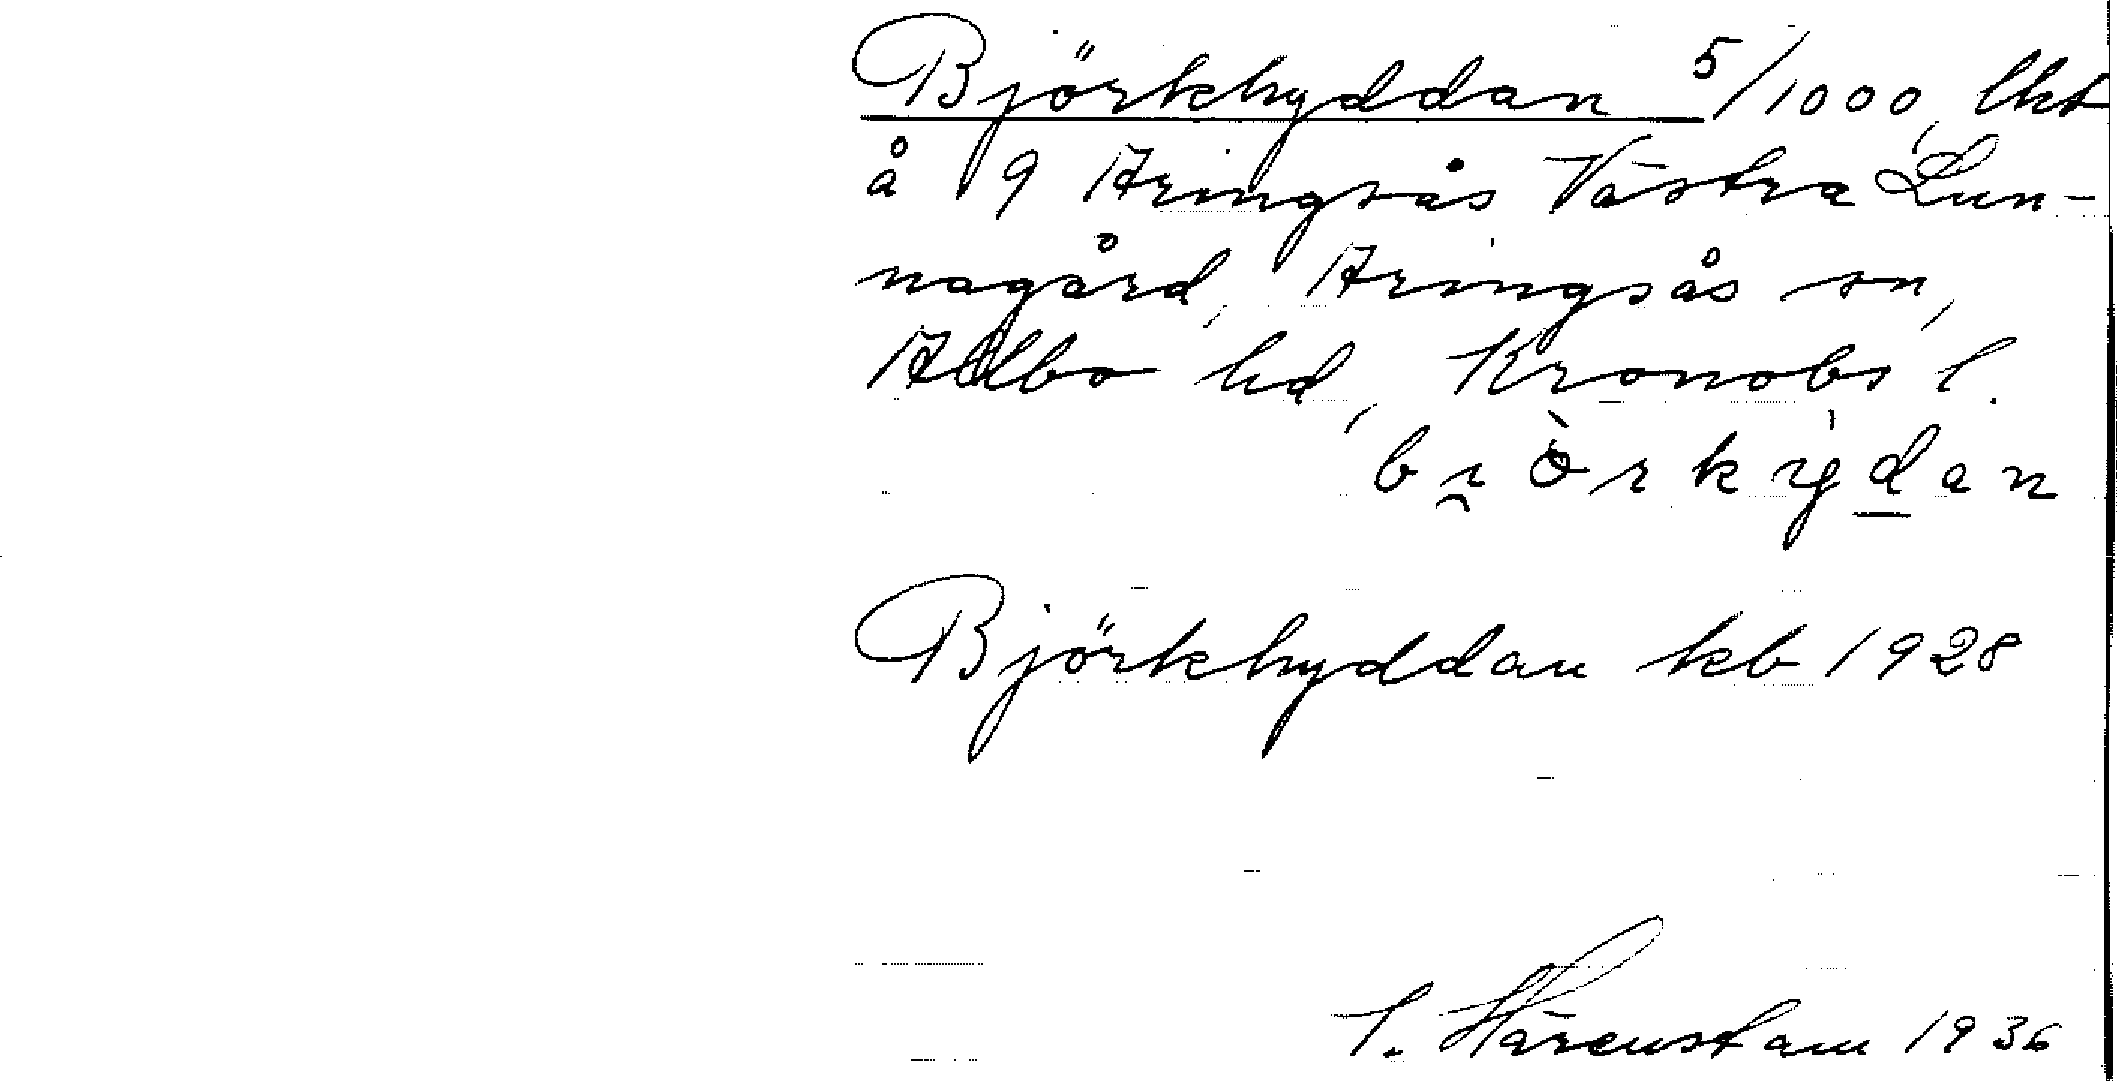 Björkhyddan 5/1000, lht
å 9 Aringsås Västra Lun-
nagård, Aringsås sn,
Allbo hd, Kronobs l.
bi̯òrkýdan
Björkhyddan kb 1928
Härenstam 1936